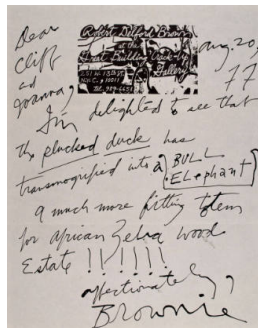 Dear
Cliff
ad
Joanna,
Robert Delford Brown
at the
Great Building Crack-Up
Gallery
251 W. 13th ST.
N.Y.C., 10011
Aug. 20,
77
I'm delighted to see that
the plucked duck has
transmogrified into a BULL
ELephant
a much more fitting totem
for african Zebra wood
Estate !!!!!!
affectionately,
Brownie